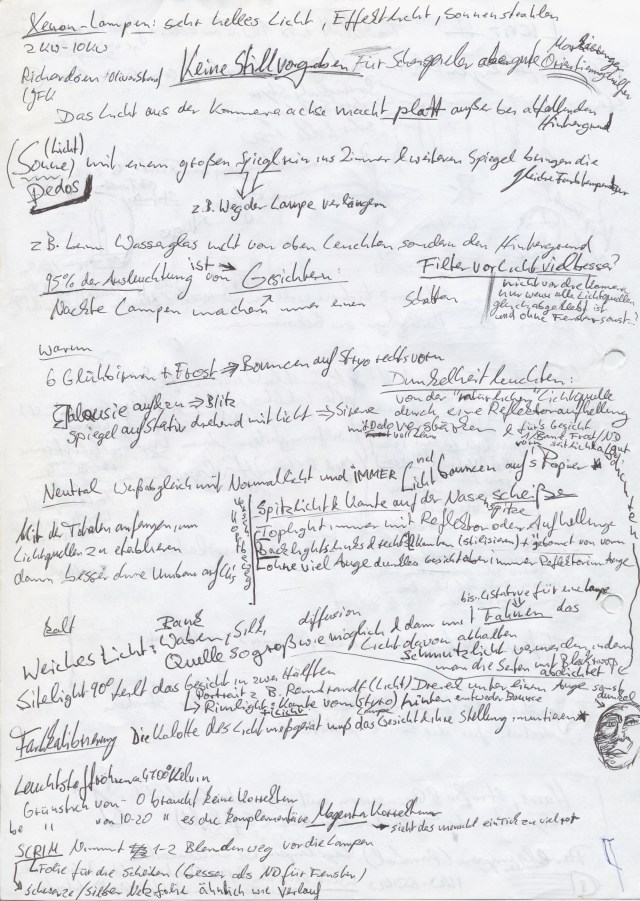 Xenon-Lampen: sehr helles Licht, Effektlicht, Sonnenstrahlen
2KW-10KW
Keine Stillvorgaben Für Schauspieler aber gute
Richardson
JFK
Das Licht aus der Kameraachse macht platt außer bei abfallenden
Hintergrund
(Licht)
(Sonne) mit einem großen Spiegel rein ins Zimmer & weiteren Spiegel bringen die
gleiche Farbtemperatur
Dedos
z.B. Weg der Lampe verlängern
z.B. beim Wasserglas nicht von oben Leuchten sondern den Hintergrund
95% der Ausleuchtung ist von Gesichtern:
Filter vor Licht viel besser?
nicht vor die Kamera
nur wenn alle Lichtquellen
gleich abgeklebt ist
und ohne Fenster sonst?
Nackte Lampen machen immer einen Schatten
warm
6 Glühbirnen + Frost → Bouncen auf Styro rechts vorn
Dunkelheit leuchten:
von der "natürlichen" Lichtquelle
durch eine Reflektoraufhellung
Jalousie auf & zu → Blitz
Spiegel auf Stativ drehend mit Licht → Sirene
mit Dedo
& für's Gesicht
Neutral Weißabgleich mit Normallicht und IMMER Licht bouncen auf's Papier
Mit der Totalen anfangen, um
Lichtquellen zu etablieren
dann besser ohne Umbau auf
Spitzlicht & Kante auf der Nasenspitze scheiße
Toplight immer mit Reflektor oder Aufhellung
Backlights links & rechts
ohne viel Auge dunkles Gesicht aber immer Reflektor im Auge
kalt
Weiches Licht: Waben, Silk, diffusion
Quelle so groß wie möglich & dann mit Fahnen das
Licht davon abhalten
Schmutzlicht vermeiden, indem
man die Seiten mit Blackwrap
abdichtet
Sitelight 90° teilt das Gesicht in zwei Hälften
Portrait z.B. Rembrandt (Licht) Dreieck unter einem Auge sonst
dunkel
→ Rimlight: Kante vom (Styro) hinten entweder Bounce
Farbkalibrierung Die Kalotte des Lichtmeßgerät muß das Gesicht & ihre Stellung imitieren
Leuchtstoffröhren 4700 Kelvin
Grünstich von - 0 braucht keine Korrektur
be " " von 10-20 " es die komplementäre Magenta Korrektur
→ sieht das menschl. ein Tick zu viel rot
SCRIM Nimmt 1-2 Blenden weg vor die Lampen
Folie für die Scheiben (besser als ND für Fenster)
schwarze/silber Netzfolie ähnlich wie Verlauf